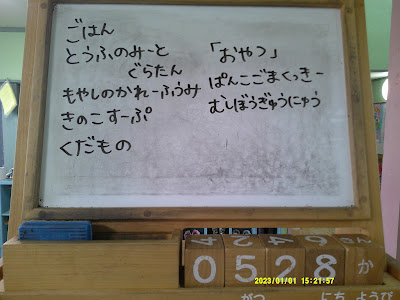 ごはん
とうふのみーと
ぐらたん
もやしのかれーふうみ
きのこすーぷ
くだもの
「おやつ」
ぱんこごまくっきー
むしぼうぎゅうにゅう
0528か
がつ にち ようび
2023/01/01 15:21:57